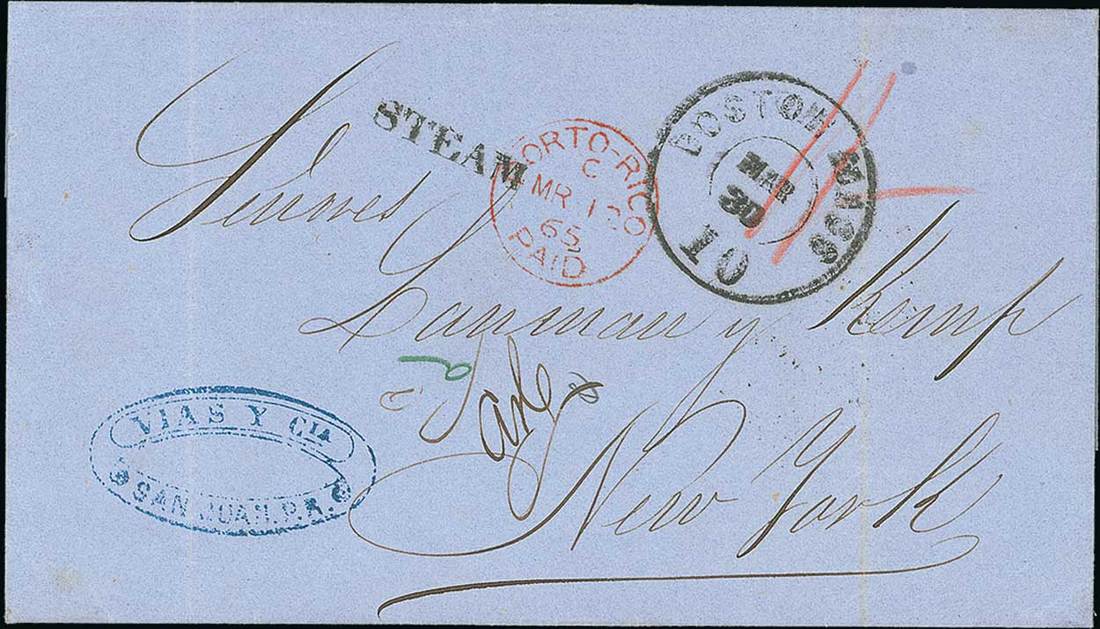 STEAM
PORTO-RICO
C
MR 1
65
PAID
BOSTON MASS
MAR
30
10
Señores
Lanman y Kemp
New York
VIAS Y CIA
SAN JUAN. P.R.